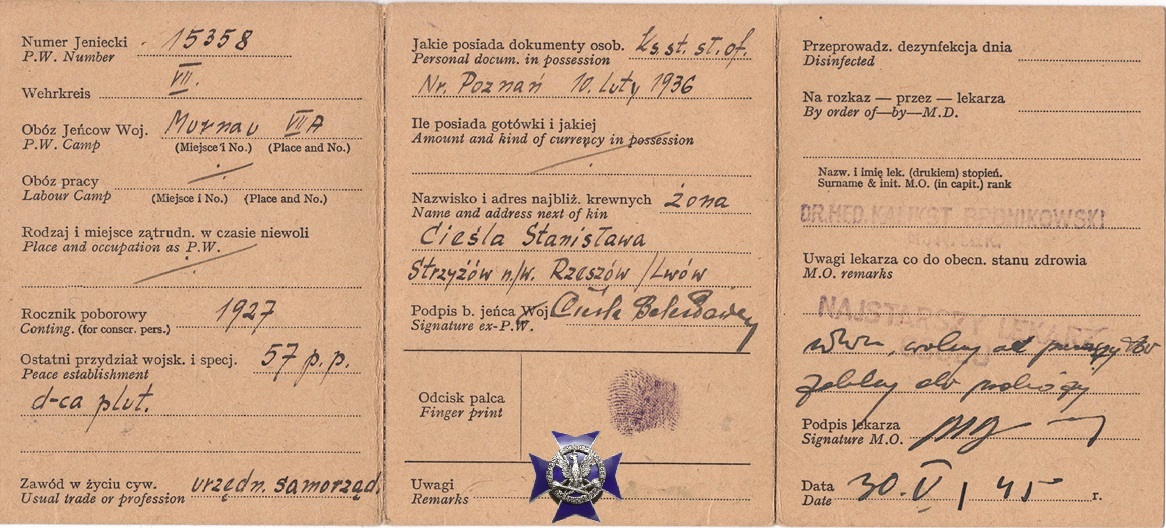 Numer Jeniecki 15358
P.W. Number
Wehrkreis VII.
Obóz Jeńcow Woj. Murnau VII A
P.W. Camp (Miejsce i No.) (Place and No.)
Obóz pracy
Labour Camp (Miejsce i No.) (Place and No.)
Rodzaj i miejsce zątrudn. w czasie niewoli
Place and occupation as P.W.
Rocznik poborowy 1927
Conting. (for conscr. pers.)
Ostatni przydział wojsk. i specj. 57 p.p.
Peace establishment
d-ca plut.
Zawód w życiu cyw. urzędn. samorząd.
Usual trade or profession
Jakie posiada dokumenty osob. Ks. st. st. of.
Personal docum. in possession
Nr. Poznań 10. luty 1936
Ile posiada gotówki i jakiej
Amount and kind of currency in possession
Nazwisko i adres najbliż. krewnych żona
Name and address next of kin
Cieśla Stanisława
Strzyżów n/w. Rzeszów /Lwów
Podpis b. jeńca Woj
Signature ex-P.W.
Odcisk palca
Finger print
Uwagi
Remarks
Przeprowadz. dezynfekcja dnia
Disinfected
Na rozkaz — przez — lekarza
By order of—by—M.D.
Nazw. i imię lek. (drukiem) stopień.
Surname & init. M.O. (in capit.) rank
DR. MED. KALIKST BRONIKOWSKI
Uwagi lekarza co do obecn. stanu zdrowia
M.O. remarks
NAJSTARSZY LEKARZ
zdolny do podróży
Podpis lekarza
Signature M.O.
Data 30.V / 45 r.
Date